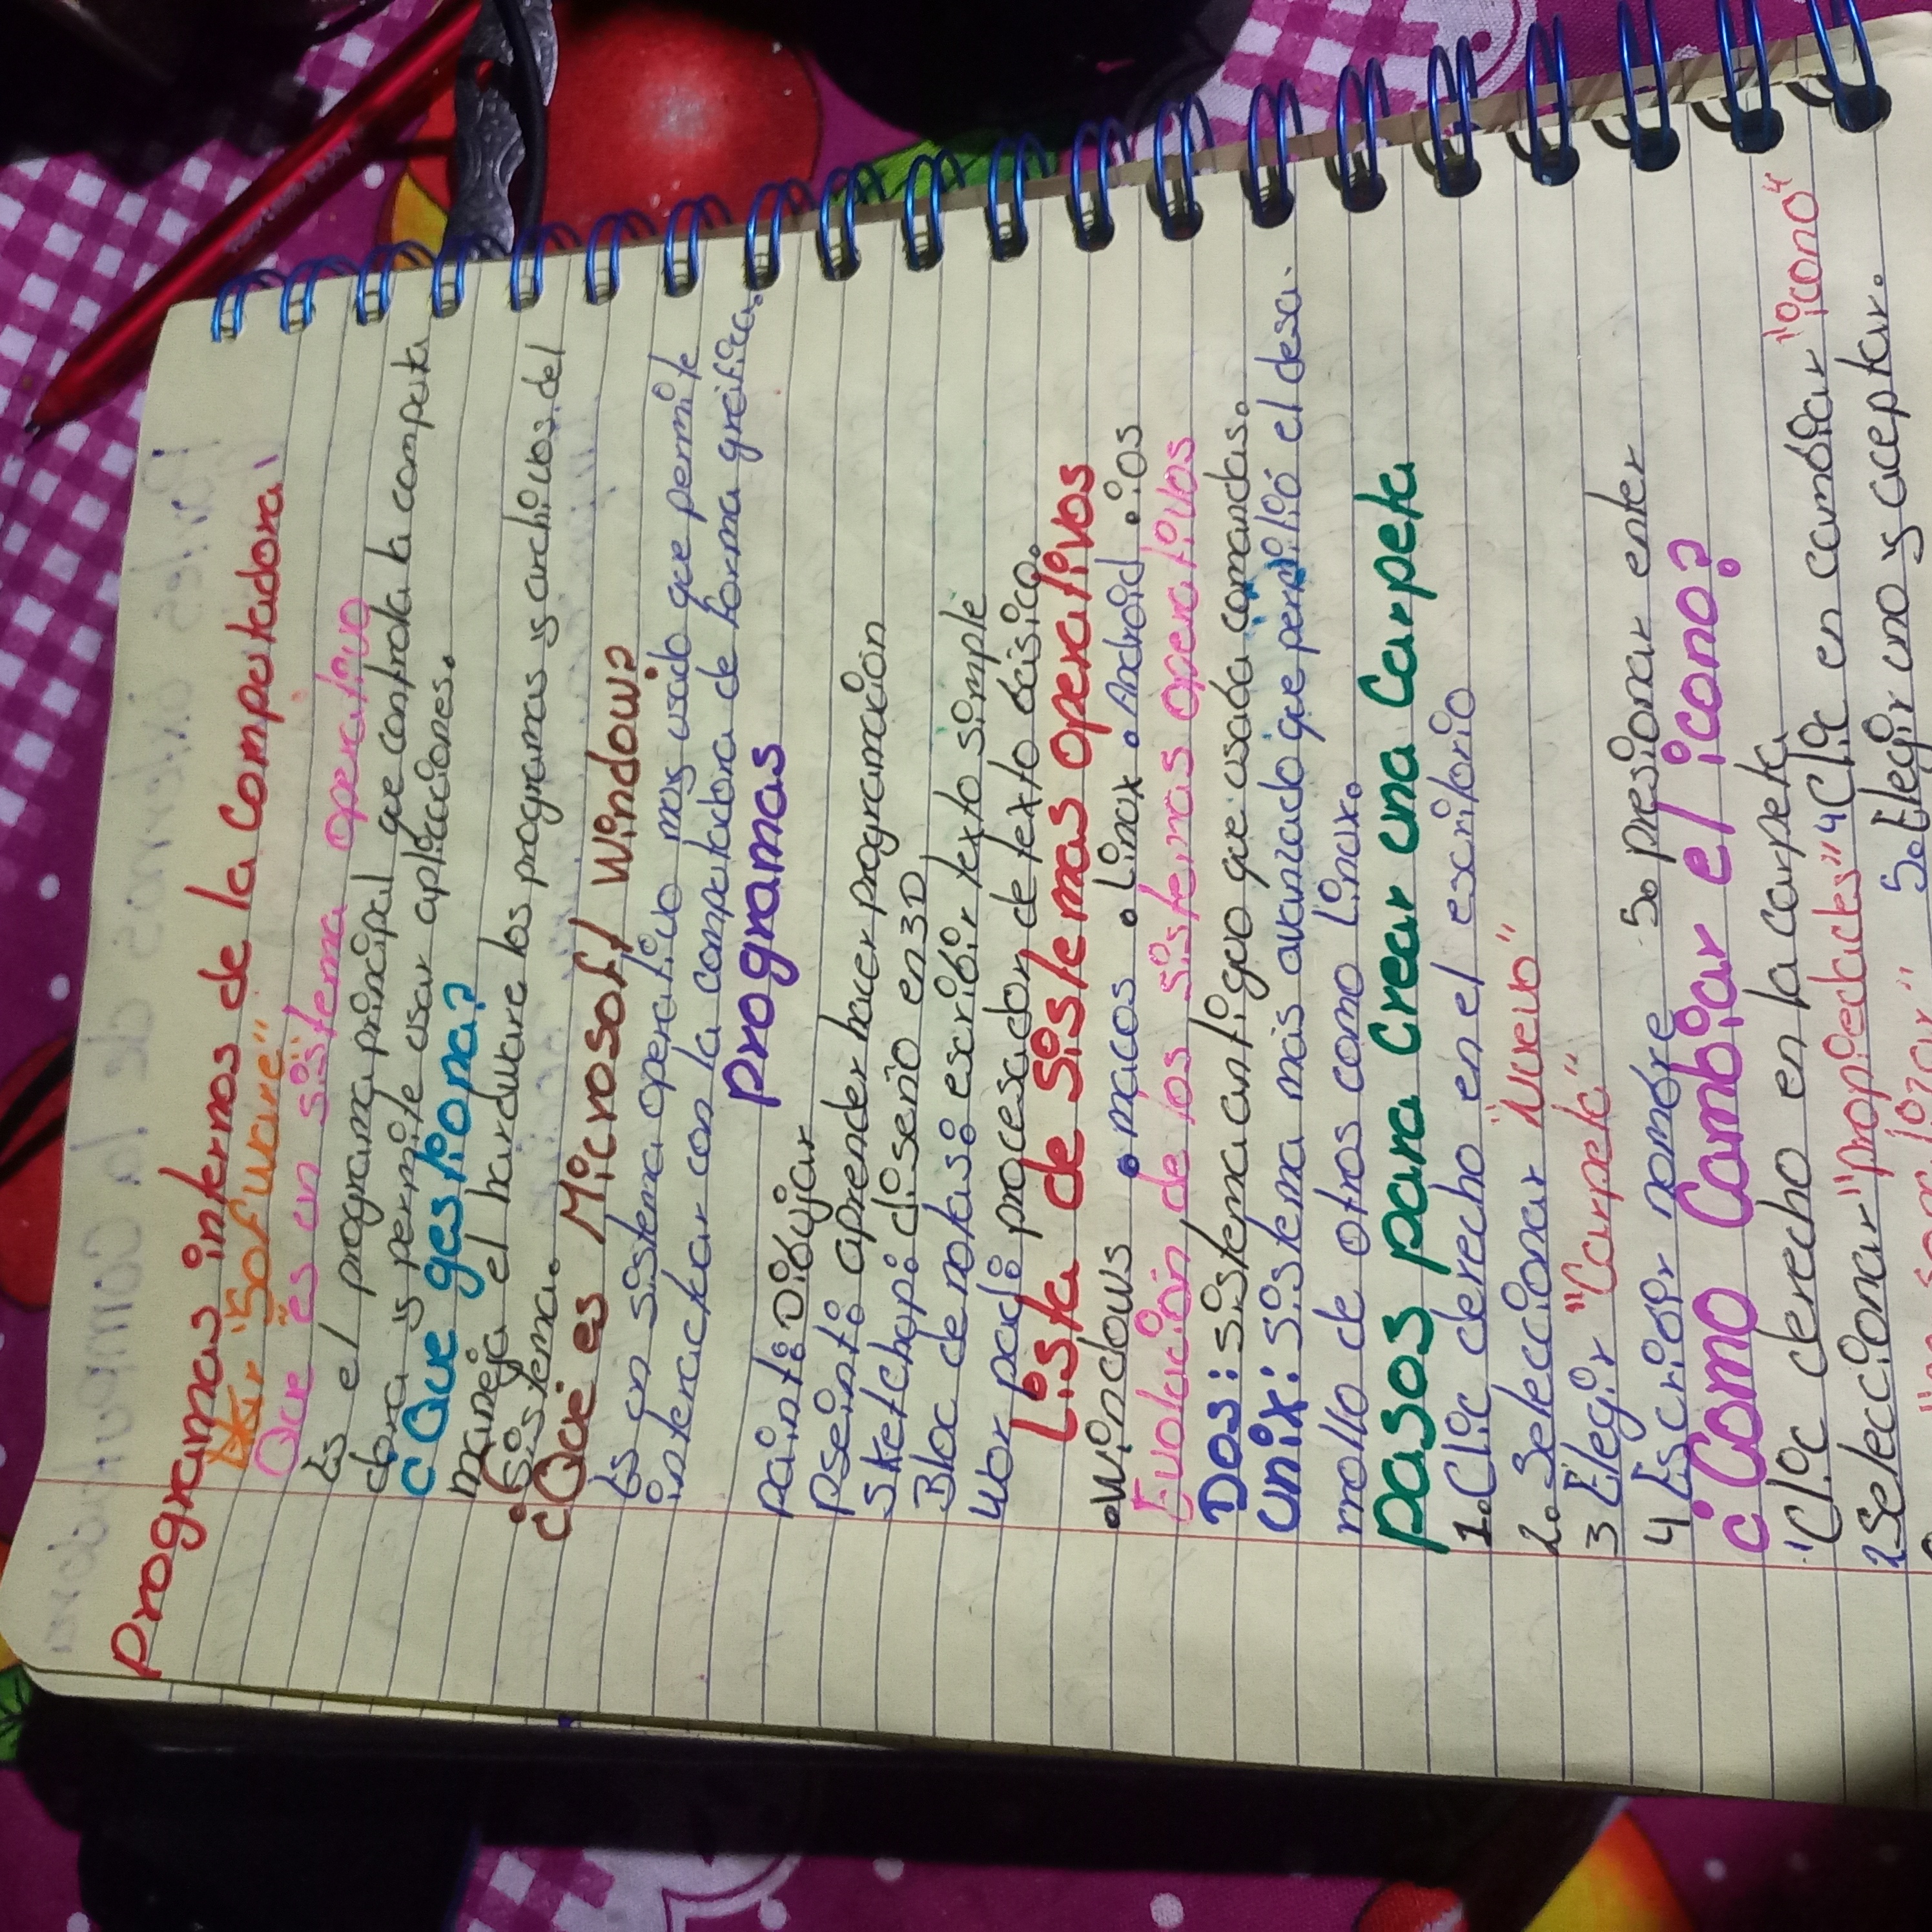 Programas internos de la Computadora
"Sofware"
Que es un sistema operativo
Es el programa principal que controla la computa
dora y permite usar aplicaciones.
¿Que gestiona?
maneja el harduare los programas y archivos del
Sistema.
¿Que es Microsoft Windows?
Es un sistema operativo mas usado que permite
interactuar con la computadora de forma gráfica.
programas
paint: Dibujar
Pseint: aprender hacer programación
Sketchap: diseño en 3D
Bloc de notas: escribir texto simple
Wor pad: procesador de texto básico.
Lista de Sistemas operativos
• Windows • macos • Linux • Android • ios
Evolución de los sistemas operativos
Dos: sistema antiguo que usaba comandos.
Unix: sistema más avanzado que permitió el desa.
rrollo de otros como Linux.
pasos para Crear una Carpeta
1. Clic derecho en el escritorio
2. Seleccionar "Nuevo"
3 Elegir "Carpeta"
4 Escribir nombre 5. presionar enter
¿Como Cambiar el icono?
1 Clic derecho en la carpeta
2 Seleccionar "propiedades" 4 Clic en cambiar "icono"
5. Elegir uno y aceptar.